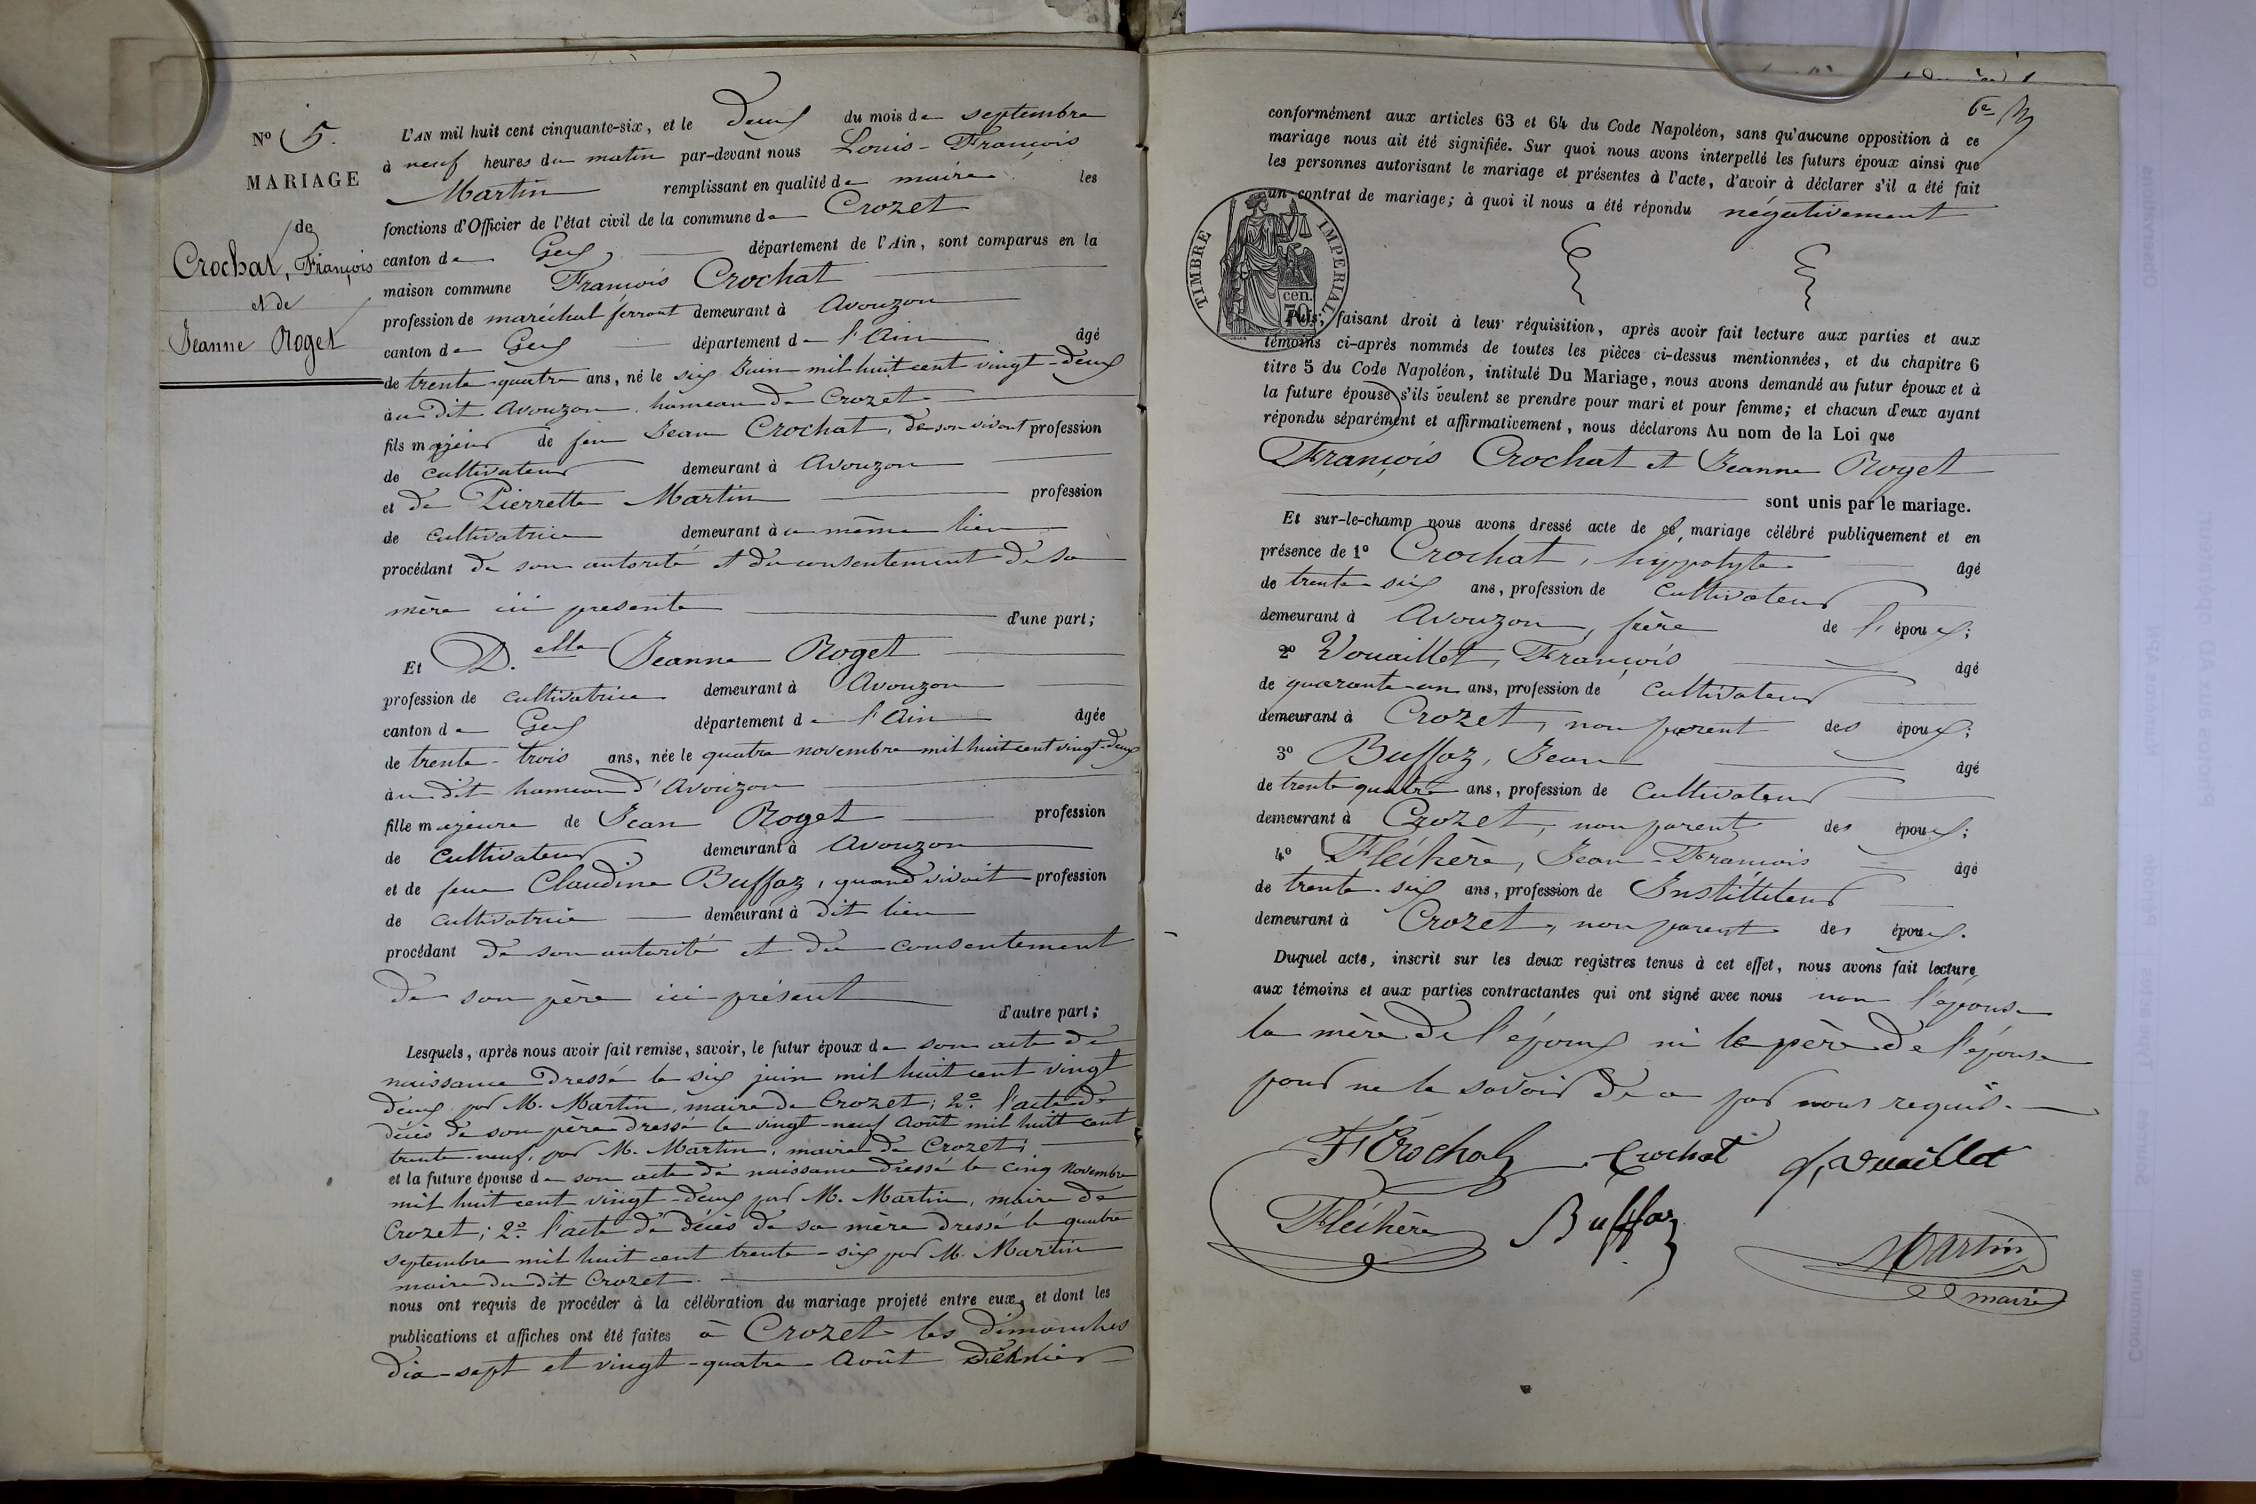 Nº 5.
MARIAGE
de
Crochat, François
et de
Jeanne Roget
L'AN mil huit cent cinquante-six, et le deux du mois de septembre
à neuf heures du matin par-devant nous Louis-François
Martin remplissant en qualité de maire les
fonctions d'Officier de l'état civil de la commune de Crozet
canton de Gex département de l'Ain, sont comparus en la
maison commune François Crochat
profession de maréchal ferrant demeurant à Avouzon
canton de Gex département de l'Ain âgé
de trente-quatre ans, né le six Juin mil huit cent vingt-deux
au dit Avouzon hameau de Crozet
fils majeur de feu Jean Crochat, de son vivant profession
de cultivateur demeurant à Avouzon
et de Pierrette Martin profession
de cultivatrice demeurant à ce même lieu
procédant de son autorité et du consentement de sa
mère ici presente d'une part;
Et D.elle Jeanne Roget
profession de cultivatrice demeurant à Avouzon
canton de Gex département de l'Ain âgée
de trente-trois ans, née le quatre novembre mil huit cent vingt-deux
au dit hameau d'Avouzon
fille majeure de Jean Roget profession
de cultivateur demeurant à Avouzon
et de feue Claudine Buffaz, quand vivait profession
de cultivatrice demeurant à dit lieu
procédant de son autorité et du consentement
de son père ici présent
d'autre part;
Lesquels, après nous avoir fait remise, savoir, le futur époux de son acte de
naissance dressé le six juin mil huit cent vingt
deux par M. Martin, maire de Crozet; 2º. l'acte de
décès de son père dressé le vingt-neuf Août mil huit cent
trente-neuf, par M. Martin, maire de Crozet;
et la future épouse de son acte de naissance dressé le cinq novembre
mil huit cent vingt-deux par M. Martin, maire de
Crozet; 2º. l'acte de décès de sa mère dressé le quatre
septembre mil huit cent trente-six par M. Martin
maire du dit Crozet.
nous ont requis de procéder à la célébration du mariage projeté entre eux, et dont les
publications et affiches ont été faites à Crozet les dimanches
dix-sept et vingt-quatre Août dernier
conformément aux articles 63 et 64 du Code Napoléon, sans qu'aucune opposition à ce
mariage nous ait été signifiée. Sur quoi nous avons interpellé les futurs époux ainsi que
les personnes autorisant le mariage et présentes à l'acte, d'avoir à déclarer s'il a été fait
un contrat de mariage; à quoi il nous a été répondu négativement
TIMBRE IMPERIAL
cen.
70
Puis, faisant droit à leur réquisition, après avoir fait lecture aux parties et aux
témoins ci-après nommés de toutes les pièces ci-dessus mentionnées, et du chapitre 6
titre 5 du Code Napoléon, intitulé Du Mariage, nous avons demandé au futur époux et à
la future épouse s'ils veulent se prendre pour mari et pour femme; et chacun d'eux ayant
répondu séparément et affirmativement, nous déclarons Au nom de la Loi que
François Crochat et Jeanne Roget
sont unis par le mariage.
Et sur-le-champ nous avons dressé acte de ce mariage célébré publiquement et en
présence de 1º Crochat, hyppolyte âgé
de trente six ans, profession de Cultivateur
demeurant à Avouzon, frère de l'époux;
2º Vouaillet, François âgé
de quarante-un ans, profession de Cultivateur
demeurant à Crozet, non parent des époux;
3º Buffaz, Jean âgé
de trente quatre ans, profession de Cultivateur
demeurant à Crozet, non parent des époux;
4º Fléchère, Jean-François âgé
de trente-six ans, profession de Instituteur
demeurant à Crozet, non parent des époux.
Duquel acte, inscrit sur les deux registres tenus à cet effet, nous avons fait lecture
aux témoins et aux parties contractantes qui ont signé avec nous non l'épouse
la mère de l'époux ni le père de l'épouse
pour ne le savoir de ce par nous requis.
F Crochat Crochat f, vuaillet
Fléchère Buffaz Martin
maire